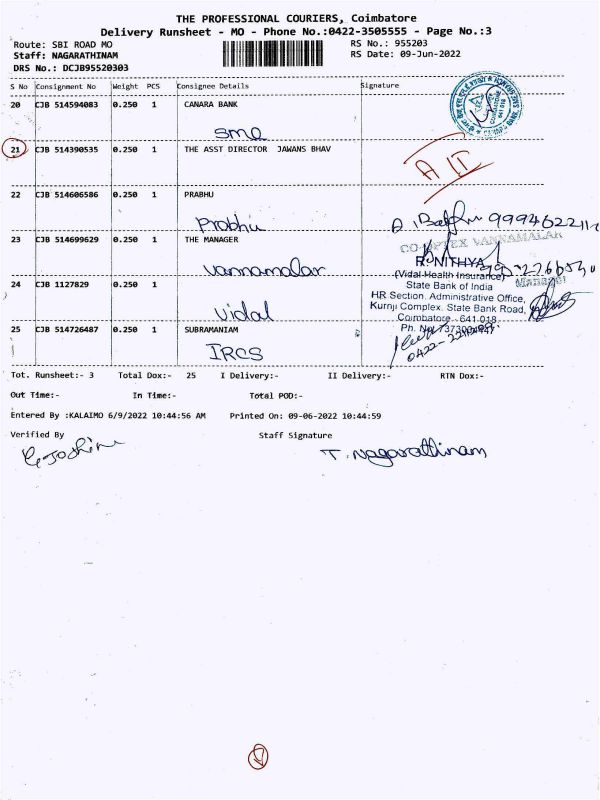 THE PROFESSIONAL COURIERS, Coimbatore
Delivery Runsheet - MO - Phone No.:0422-3505555 - Page No.:3
Route: SBI ROAD MO RS No.: 955203
Staff: NAGARATHINAM RS Date: 09-Jun-2022
DRS No.: DCJB95520303
S No Consignment No Weight PCS Consignee Details Signature
20 CJB 514594083 0.250 1 CANARA BANK
21 CJB 514390535 0.250 1 THE ASST DIRECTOR JAWANS BHAV
A IT
22 CJB 514606586 0.250 1 PRABHU
Prabhu
23 CJB 514699629 0.250 1 THE MANAGER
COMPTEX VANNAMALAR
vannamalar
R. NITHYA
(Vidal Health Insurance)
Manager
24 CJB 1127829 0.250 1
State Bank of India
HR Section, Administrative Office,
Vidal
Kurnji Complex, State Bank Road,
Coimbatore - 641 018
25 CJB 514726487 0.250 1 SUBRAMANIAM
IRCS
Tot. Runsheet:- 3 Total Dox:- 25 I Delivery:- II Delivery:- RTN Dox:-
Out Time:- In Time:- Total POD:-
Entered By :KALAIMO 6/9/2022 10:44:56 AM Printed On: 09-06-2022 10:44:59
Verified By Staff Signature
T. Nagarathinam